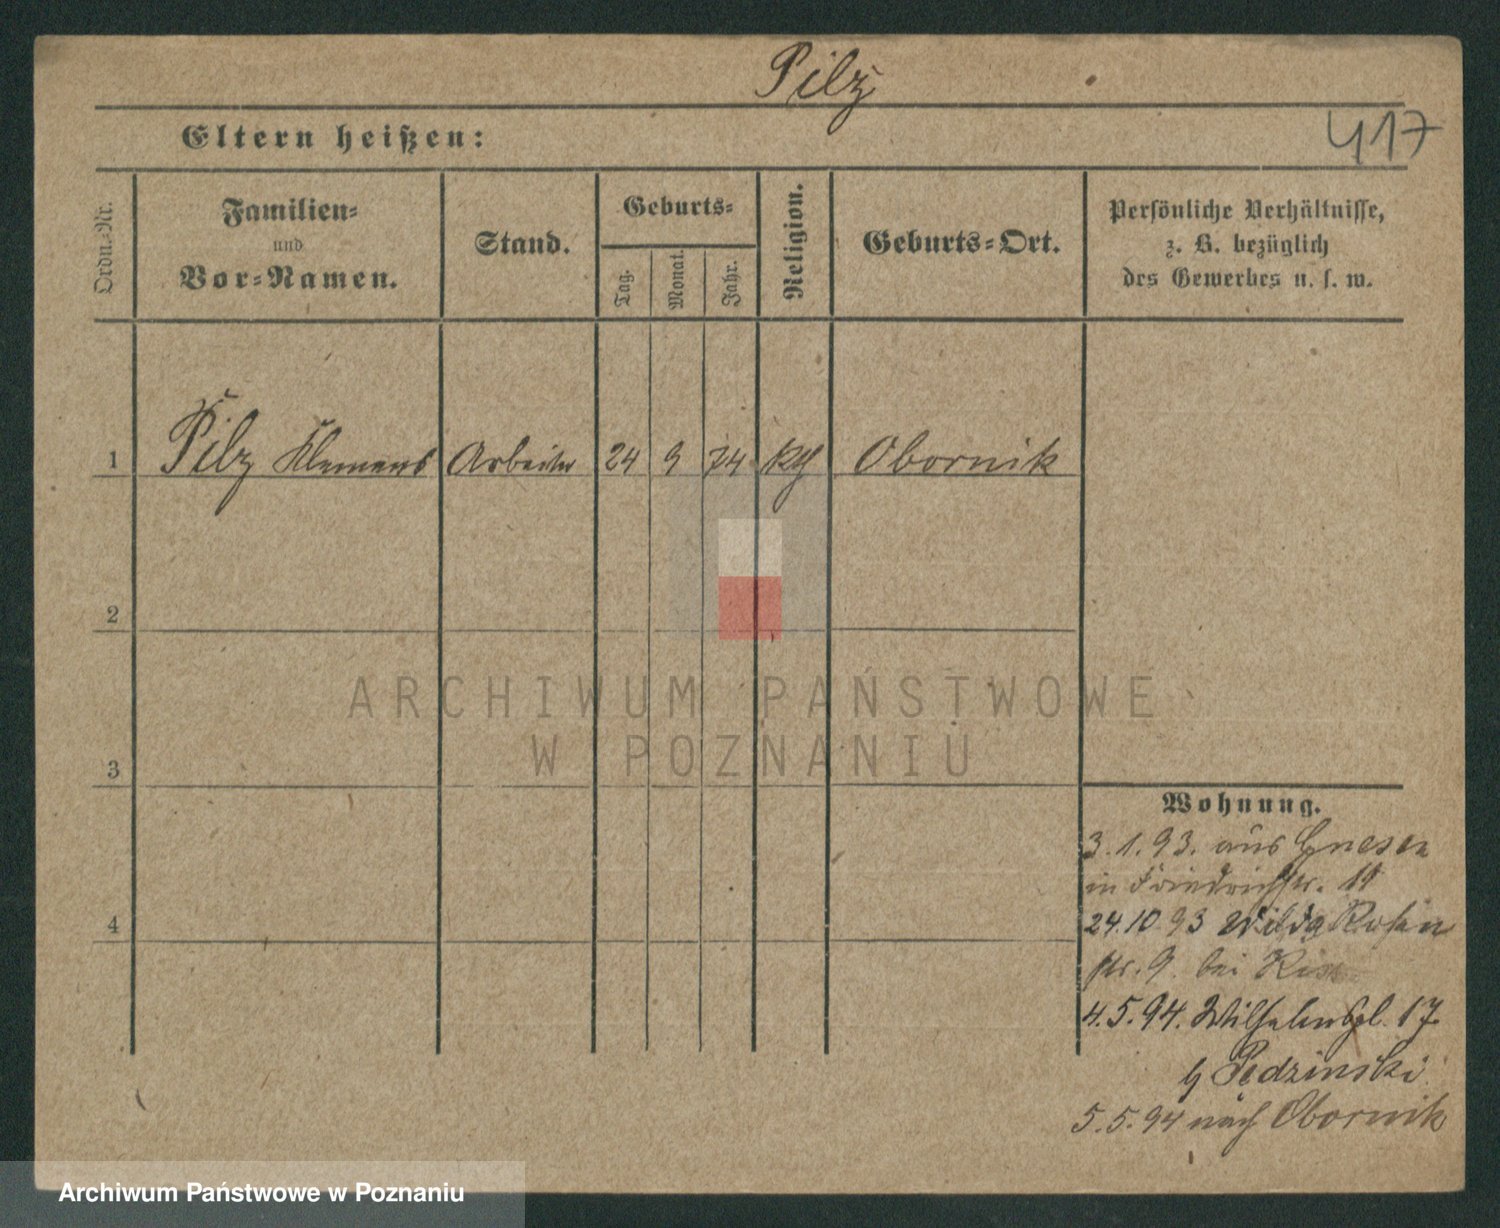 Pilz
417
Eltern heißen:
Ordn.-Nr.
Familien-
und
Vor-Namen.
Stand.
Geburts-
Tag.
Monat.
Jahr.
Religion.
Geburts-Ort.
Persönliche Verhältnisse,
z. B. bezüglich
des Gewerbes u. s. w.
1 Pilz Klemens Arbeiter 24 9 74 kth Obornik
2
3
4
ARCHIWUM PAŃSTWOWE
W POZNANIU
Wohnung.
3.1.93. aus Gnesen
in Friedrichstr. 19
24.10.93 Wilda Rosen
str. 9. bei
4.5.94. Wilhelmspl. 17
b Pędzinski
5.5.94 nach Obornik
Archiwum Państwowe w Poznaniu